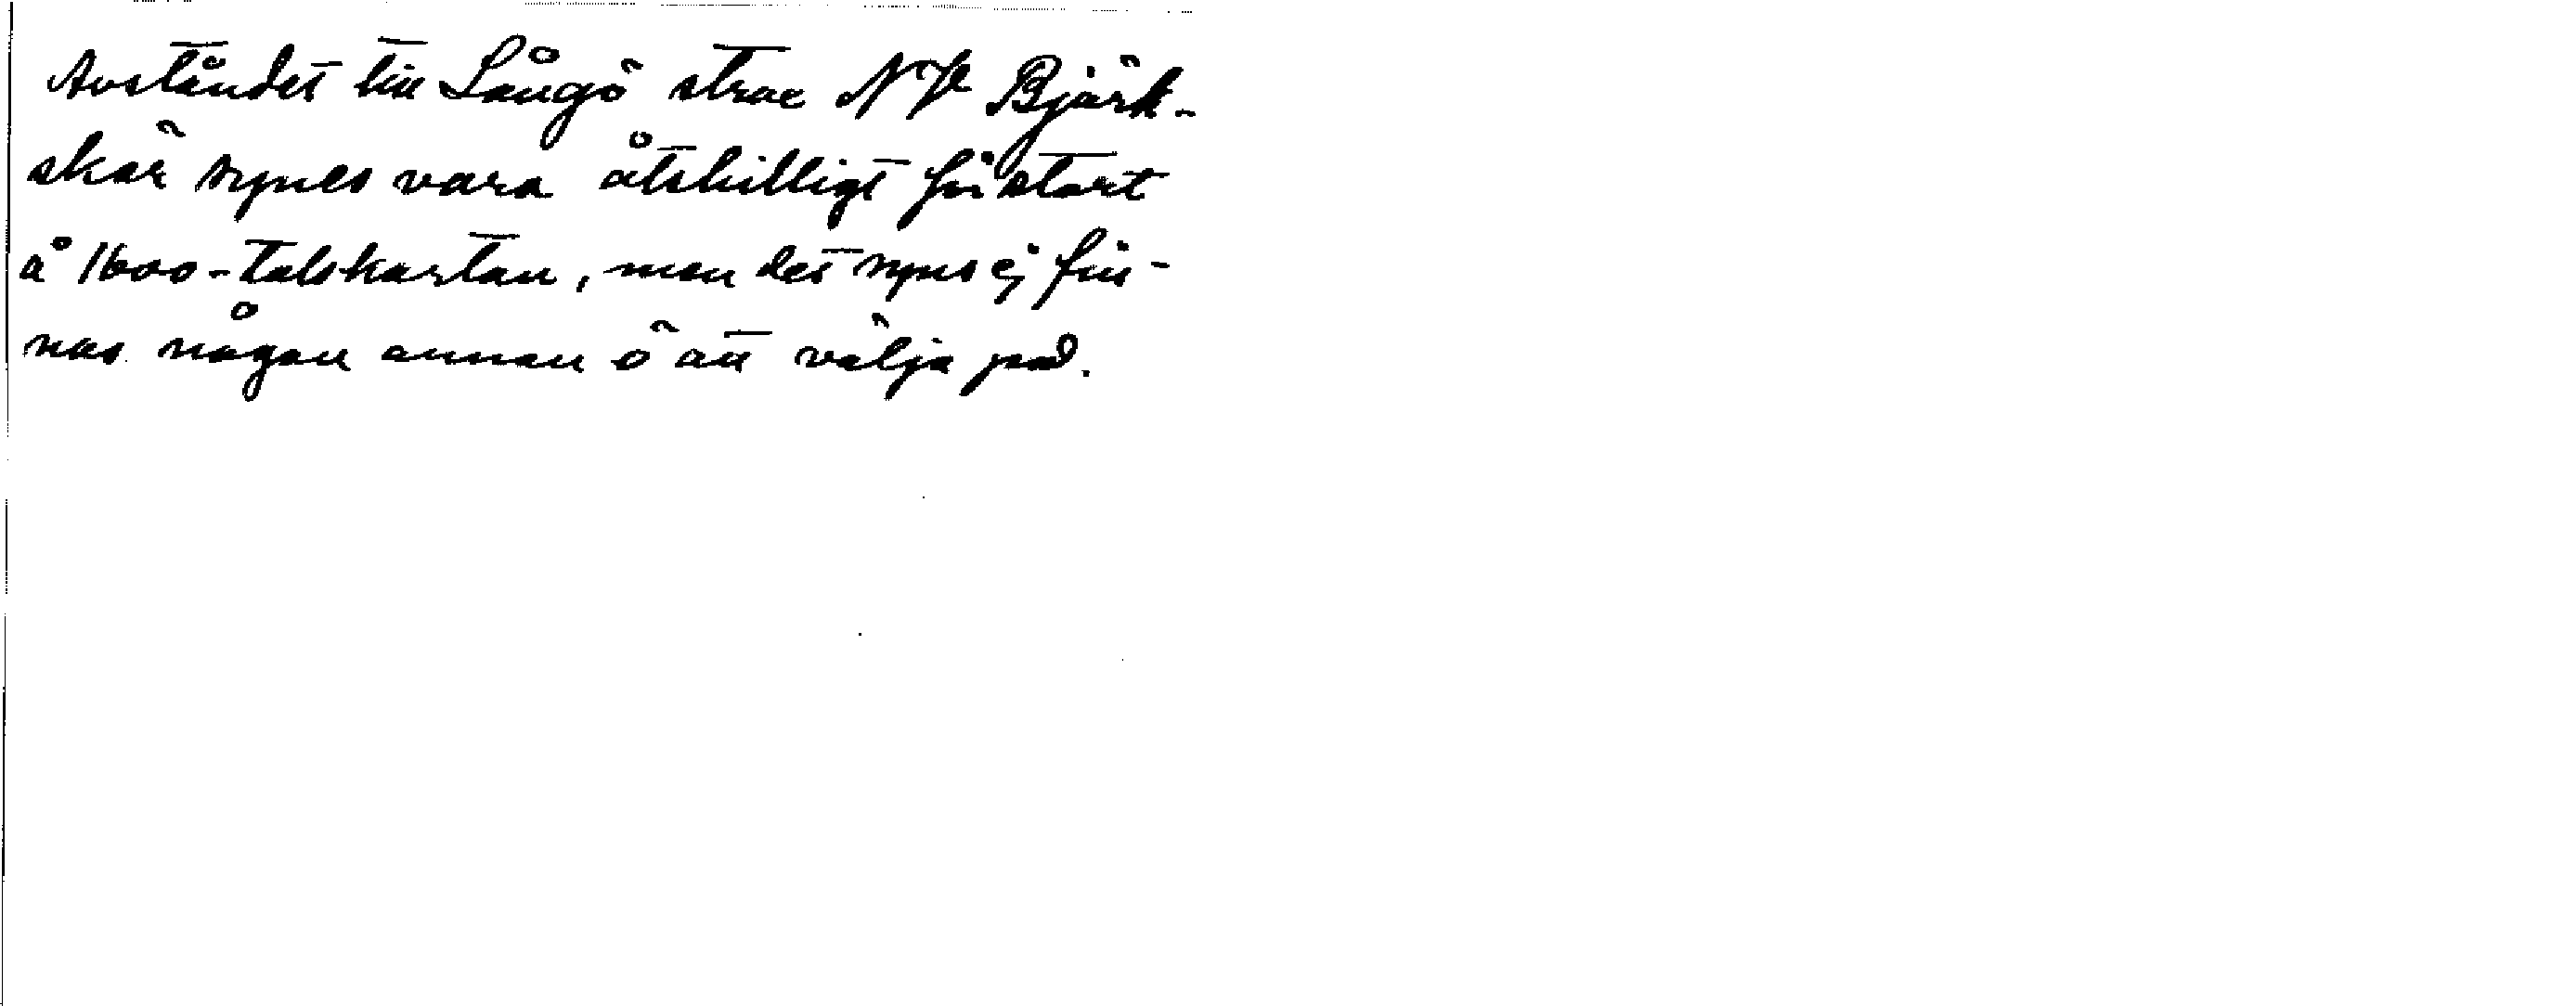 Avståndet till Långö strax NV Björk-
skär synes vara åtskilligt för stort
å 1600-talskartan, men det synes ej fin-
nas någon annan ö att välja på.